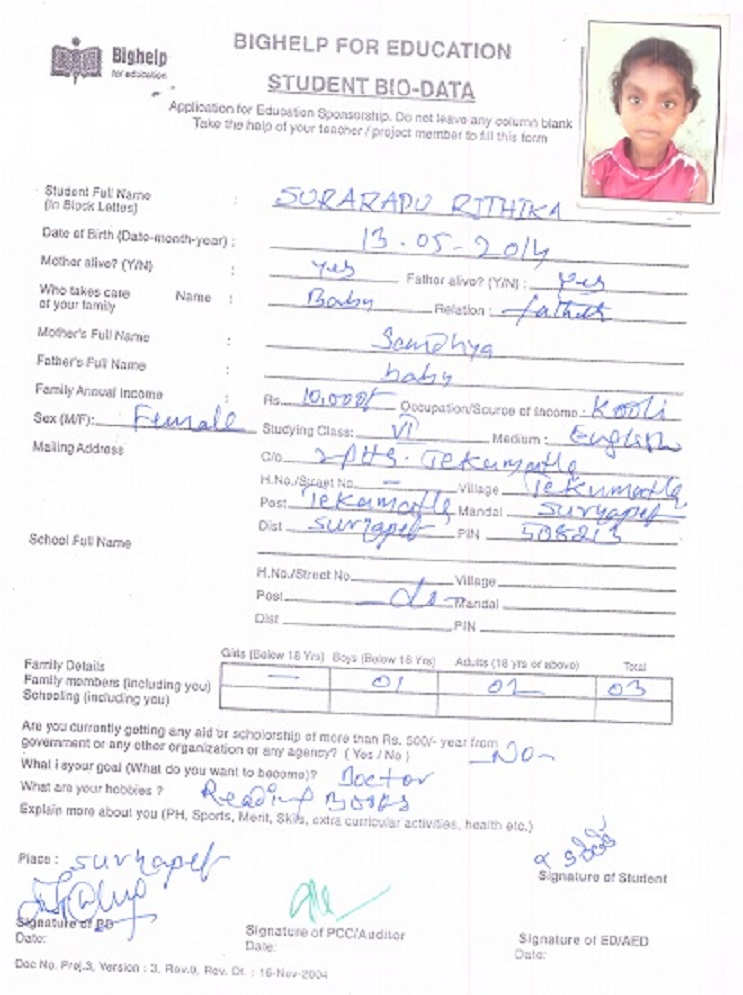 Bighelp
for education
BIGHELP FOR EDUCATION
STUDENT BIO-DATA
Application for Education Sponsorship. Do not leave any column blank
Take the help of your teacher / project member to fill this form
Student Full Name
(In Block Letters) : SURARAPU RITHIKA
Date of Birth (Date-month-year) : 13-05-2014
Mother alive? (Y/N) : yes Father alive? (Y/N) : yes
Who takes care
of your family Name : Baby Relation : father
Mother's Full Name : Sandhya
Father's Full Name : baby
Family Annual Income : Rs. 10,000/- Occupation/Source of Income : Kooli
Sex (M/F): Female Studying Class: VI Medium : English
Mailing Address C/o ZPHS. Tekumatla
H.No./Street No. - Village Tekumatla
Post Tekumatla Mandal Suryapet
Dist Suryapet PIN 508213
School Full Name
H.No./Street No. Village
Post do Mandal
Dist PIN
Girls (Below 18 Yrs) Boys (Below 18 Yrs) Adults (18 yrs or above) Total
Family Details
Family members (including you) — 01 02 03
Schooling (including you)
Are you currently getting any aid or scholorship of more than Rs. 500/- year from
government or any other organization or any agency? ( Yes / No ) -No-
What i syour goal (What do you want to become)? Doctor
What are your hobbies ? Reading Books
Explain more about you (PH, Sports, Merit, Skils, extra curricular activities, health etc.)
Place : Suryapet
Signature of Student
Signature of PD
Date:
Signature of PCC/Auditor
Date:
Signature of ED/AED
Date:
Doc No. Proj.3, Version : 3, Rev.0, Rev. Dt. : 16-Nov-2004